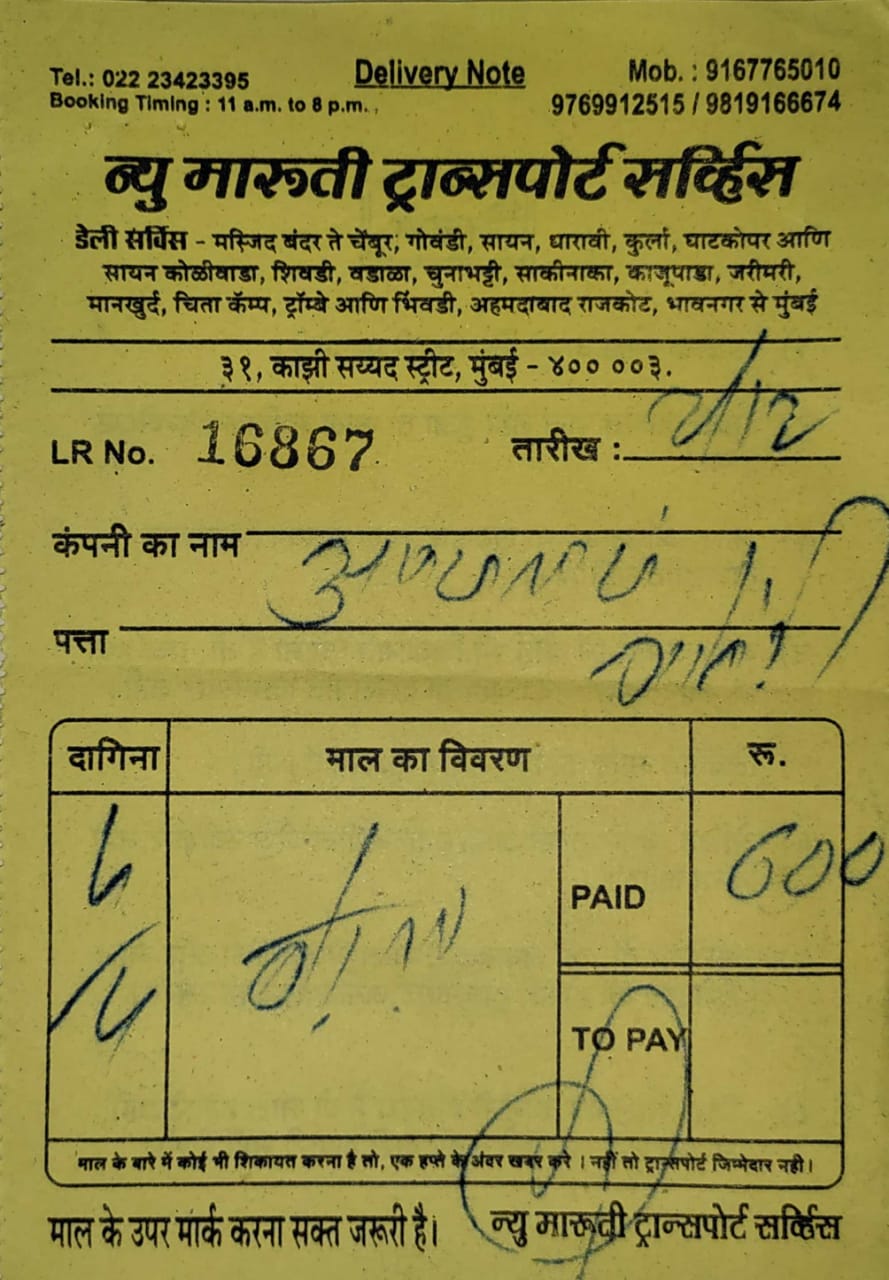 Tel.: 022 23423395 Delivery Note Mob. : 9167765010
Booking Timing : 11 a.m. to 8 p.m. 9769912515 / 9819166674
न्यु मारूती ट्रान्सपोर्ट सर्व्हिस
डेली सर्विस - मस्जिद बंदर ते चेंबूर, गोवंडी, सायन, धारावी, कुर्ला, घाटकोपर आणि
सायन कोळीवाडा, शिवडी, वडाळा, चुनाभट्टी, साकीनाका, काजूपाडा, जरीमरी,
मानखुर्द, चिता कॅम्प, ट्रॉम्बे आणि भिवडी, अहमदाबाद राजकोट, भावनगर से मुंबई
३१, काझी सय्यद स्ट्रीट, मुंबई - ४०० ००३.
LR No. 16867 तारीख :
कंपनी का नाम
पत्ता
दागिना माल का विवरण रू.
PAID 600
TO PAY
माल के बारे में कोई भी शिकायत करना है तो, एक हप्ते के अंदर खबर करे । नहीं तो ट्रान्सपोर्ट जिम्मेदार नही।
माल के उपर मार्क करना सक्त जरूरी है। न्यु मारूती ट्रान्सपोर्ट सर्व्हिस